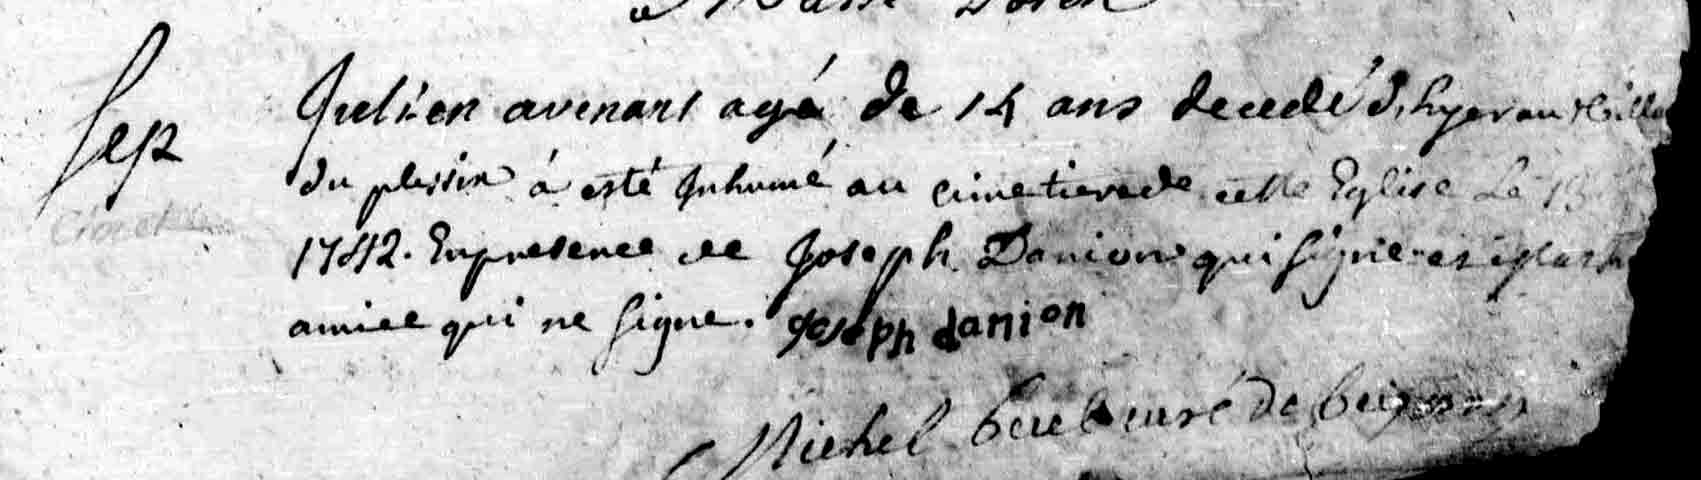 Sep
Julien avenant agé de 14 ans decedé d'hyer au village
du plessix á esté Inhumé au cimetiere de cette Eglise Le 13
1742. En presence de Joseph Danion qui signe et
amice qui ne signe. joseph danion
Michel curé de beignon